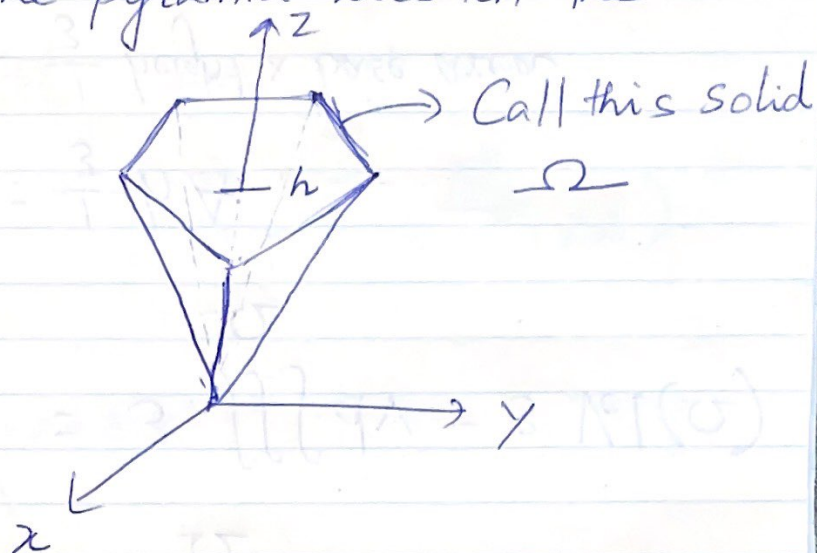 z
Call this solid
Ω
h
y
x